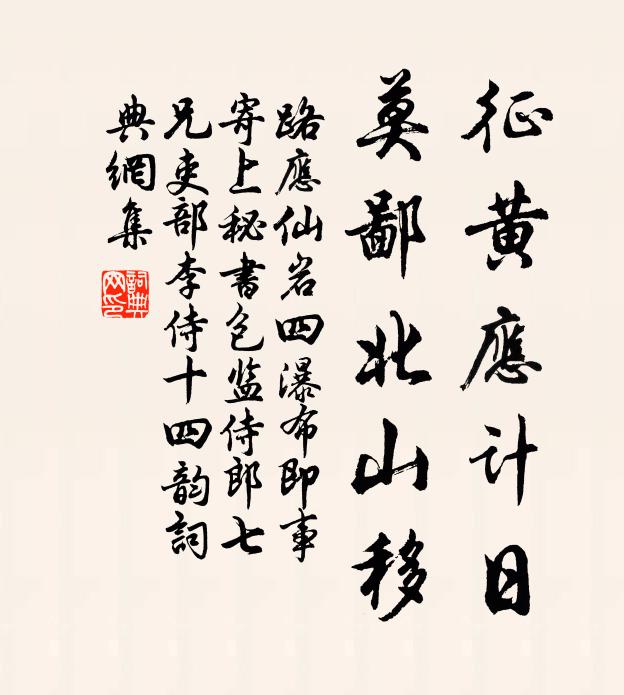 征黄應计日
莫鄙北山移
路應仙岩四瀑布即事
寄上秘書包监侍郎七
兄吏部李侍十四韵詞
典網集
詞典
网印